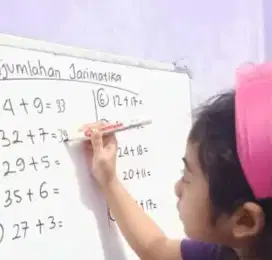 jumlahan Jarimatika
4+9= 33
32+7=39
29+5=
35+6=
27+3=
⑥ 12+17=
24+18=
20+11=
+17=